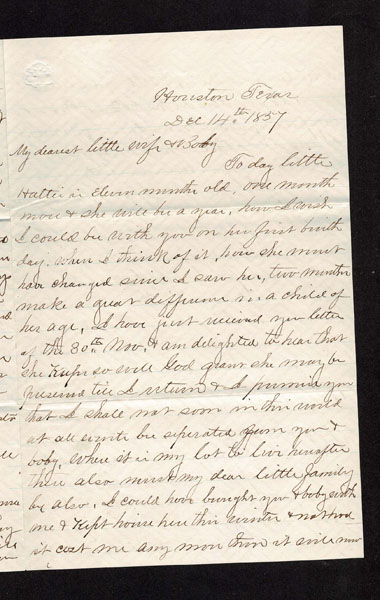 Houston Texas
Dec 14th 1857
My dearest little wife & Boby
To day little
Hattie is eleven months old, one month
more & she will be a year, how I wish
I could be with you on her first birth
day. When I think of it, how she must
have changed since I saw her, two months
make a great difference in a child of
her age, I have just received your letter
of the 30th Nov. & am delighted to hear that
she keeps so well God grant she may be
preserved till I return & I promise you
that I shall not soon in this world
at all events be seperated from you &
boby, Where it is my lot to live hereafter
there also must my dear little family
be also. I could have brought you & boby with
me & kept house here this winter & not had
it cost me any more than it will now